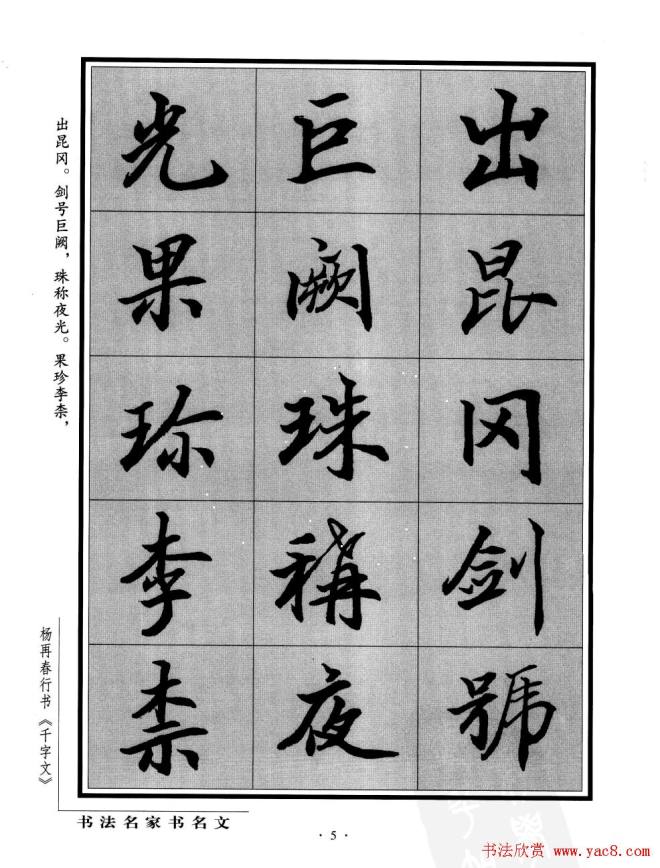 出昆冈剑號
巨阙珠稱夜
光果珎李柰
出昆冈。剑号巨阙，珠称夜光。果珍李柰，
杨再春行书《千字文》
书法名家书名文
·5·
书法欣赏 www.yac8.com